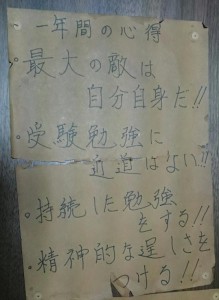 一年間の心得
・最大の敵は
自分自身だ!!
・受験勉強に
近道はない!!
・持続した勉強
をする!!
・精神的な逞しさを
つける!!